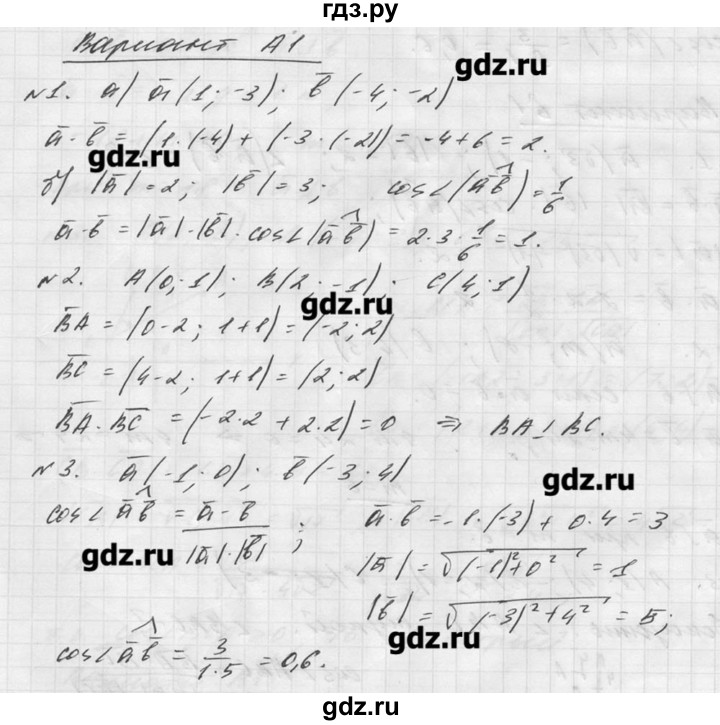 гдз.ру
Вариант А1
gdz.ru
№1. а) a̅(1; -3); b̅(-4; -2)
a̅·b̅ = (1·(-4) + (-3·(-2)) = -4+6 = 2.
gdz.ru
б) |a̅| = 2; |b̅| = 3; cos∠(a̅^b̅) = 1/6
a̅·b̅ = |a̅|·|b̅|·cos∠(a̅^b̅) = 2·3·1/6 = 1.
№2. A(0; 1); B(2; -1); C(4; 1)
gdz.ru
B̅A̅ = (0-2; 1+1) = (-2; 2)
B̅C̅ = (4-2; 1+1) = (2; 2)
B̅A̅·B̅C̅ = (-2·2 + 2·2) = 0 ⇒ BA⊥BC.
№3. a̅(-1; 0); b̅(-3; 4)
gdz.ru
cos∠a̅^b̅ = a̅·b̅ / |a̅|·|b̅| ; a̅·b̅ = -1·(-3) + 0·4 = 3
gdz.ru
|a̅| = √(-1)²+0² = 1
|b̅| = √(-3)²+4² = 5;
gdz.ru
cos∠a̅^b̅ = 3/1·5 = 0,6.
gdz.ru